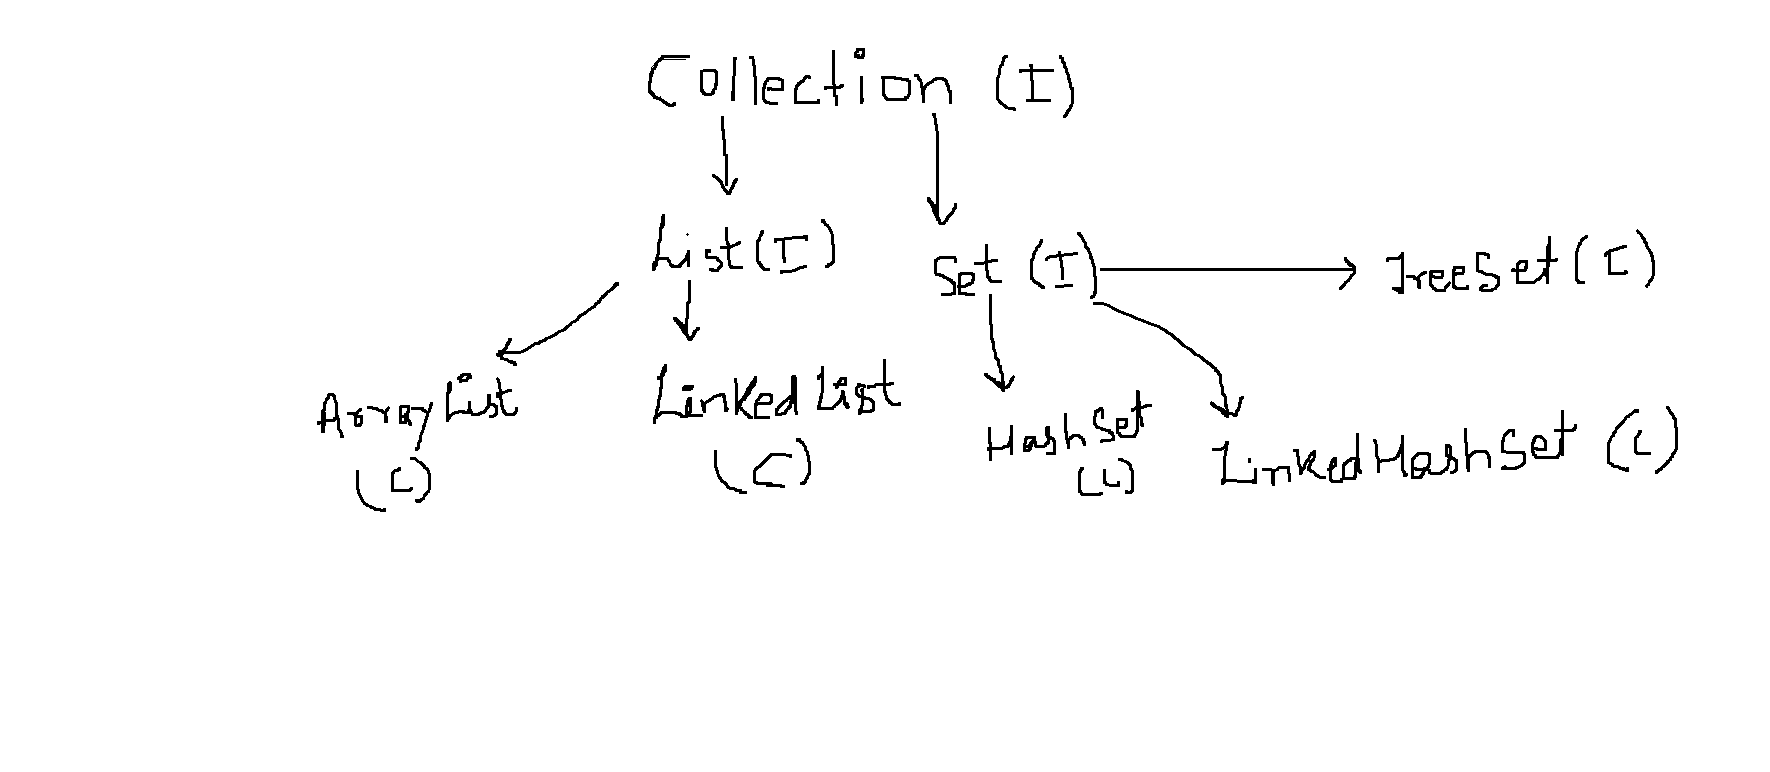 Collection (I)
List (I)
Set (I)
TreeSet (I)
ArrayList
(C)
Linked List
(C)
HashSet
(C)
LinkedHashSet (C)